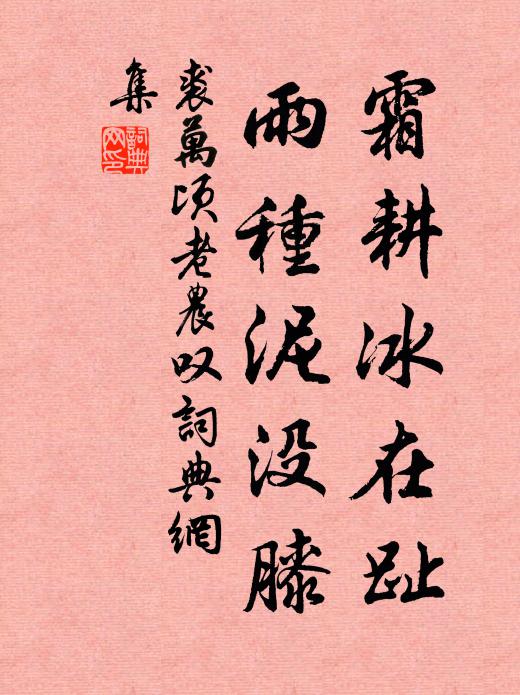 霜耕冰在趾
雨種泥没膝
裘萬頃老農叹詞典網
集
詞典
网印